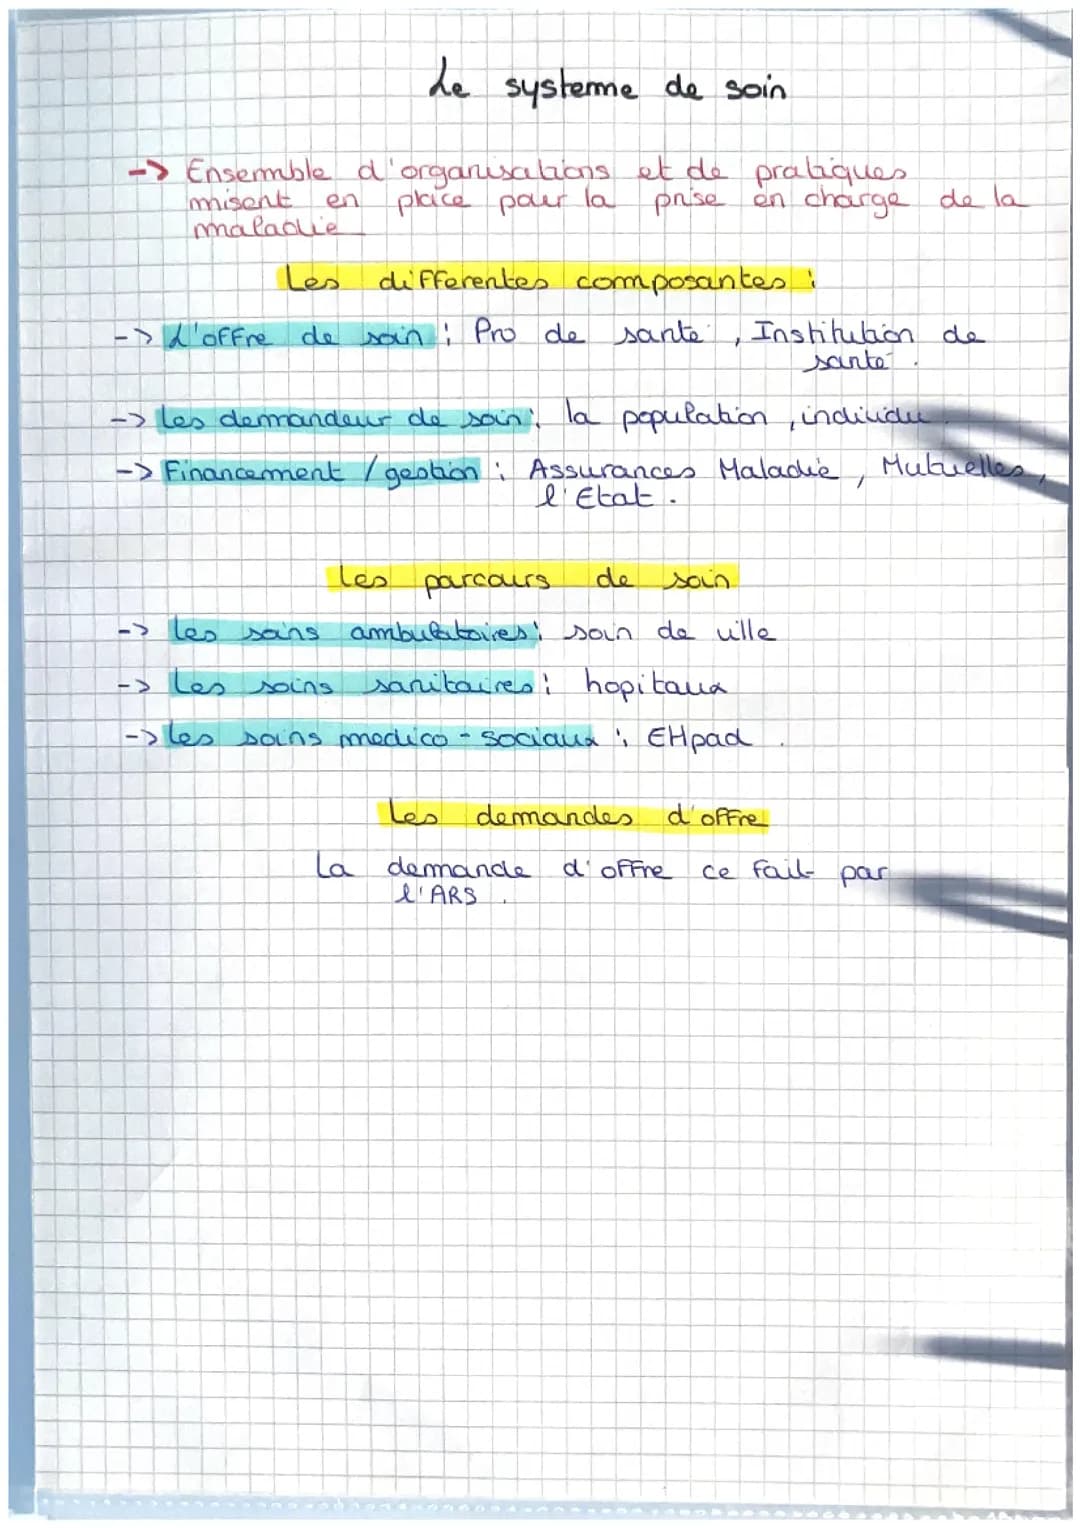 Le systeme de soin
-> Ensemble d'organisations et de pratiques
misent en place pour la prise en charge de la
maladie
Les differentes composantes :
-> L'offre de soin : Pro de santé, Institution de
santé.
-> Les demandeur de soin : la population, individu.
-> Financement / gestion : Assurances Maladie, Mutuelles,
l'Etat.
Les parcours de soin
-> Les soins ambulatoires : soin de ville
-> Les soins sanitaires : hopitaux
-> Les soins medico-sociaux : EHpad.
Les demandes d'offre
La demande d'offre ce fait par
l'ARS.